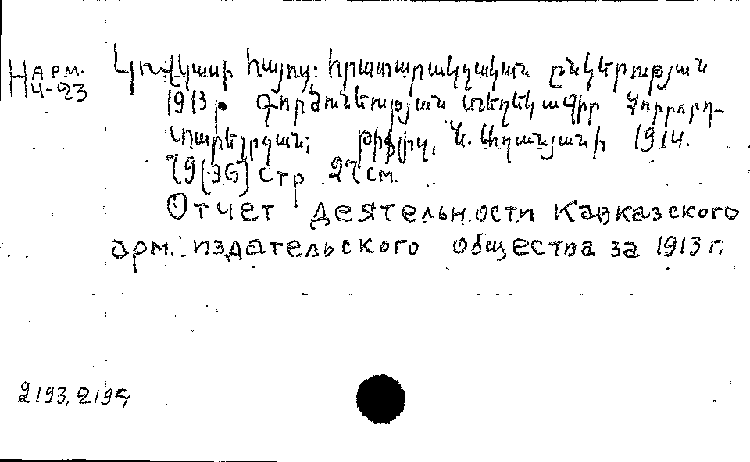 Нарм.
4-23
Կովկասի հայոց հրատարակչական ընկերության
1913 թ. Գործունեության տեղեկագիր
թիֆլիս, 1914.
79 [36] стр 27 см.
Отчет деятельности Кавказского
арм. издательского общества за 1913 г.
2193, 2194